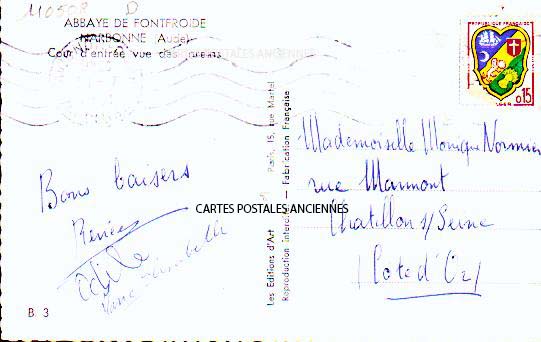 110508 D
ABBAYE DE FONTFROIDE
NARBONNE (Aude)
Cour d'entrée vue des jardins
CARTES POSTALES ANCIENNES
REPUBLIQUE FRANÇAISE
0,15
Bons baisers
Renée
Odile
CARTES POSTALES ANCIENNES
B 3
Les Editions d'Art
Paris, 15, rue Martel
Reproduction interdite — Fabrication Française
Mademoiselle Monique Normier
rue Marmont
Chatillon s/ Seine
(Cote d'Or)